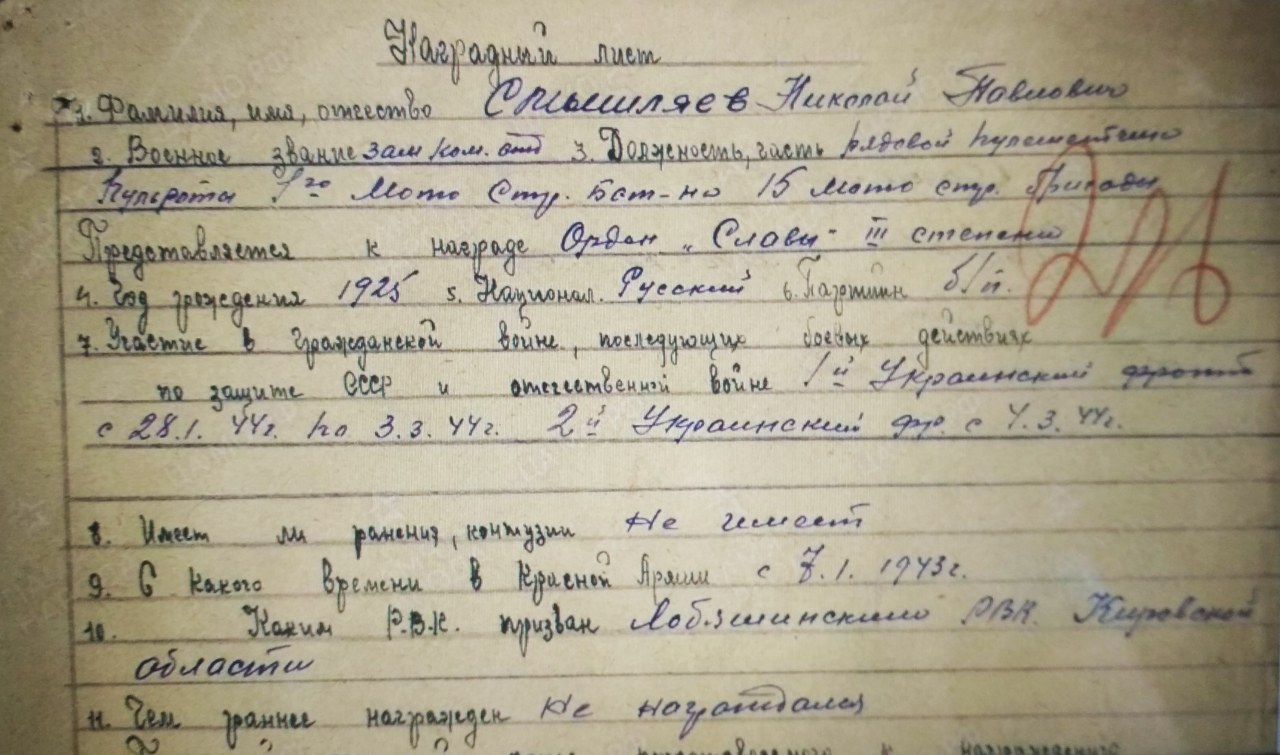 Наградный лист
1. Фамилия, имя, отчество Смышляев Николай Павлович
2. Военное звание зам ком. отд 3. Должность, часть рядовой
Пульроты 1го Мото Стр. Бат-на 15 мото стр. бригады
Представляется к награде Орден "Славы" III степени
4. Год рождения 1925 5. Национал. Русский 6. Партийн б/п.
7. Участие в гражданской войне, последующих боевых действиях
по защите СССР и отечественной войне 1й Украинский фронт
с 28.1.44г. по 3.3.44г. 2й Украинский фр. с 4.3.44г.
8. Имеет ли ранения, контузии Не имеет
9. С какого времени в Красной Армии с 7.1.1943г.
10. Каким Р.В.К. призван РВК. Кировской
области
11. Чем раннее награжден Не награждался